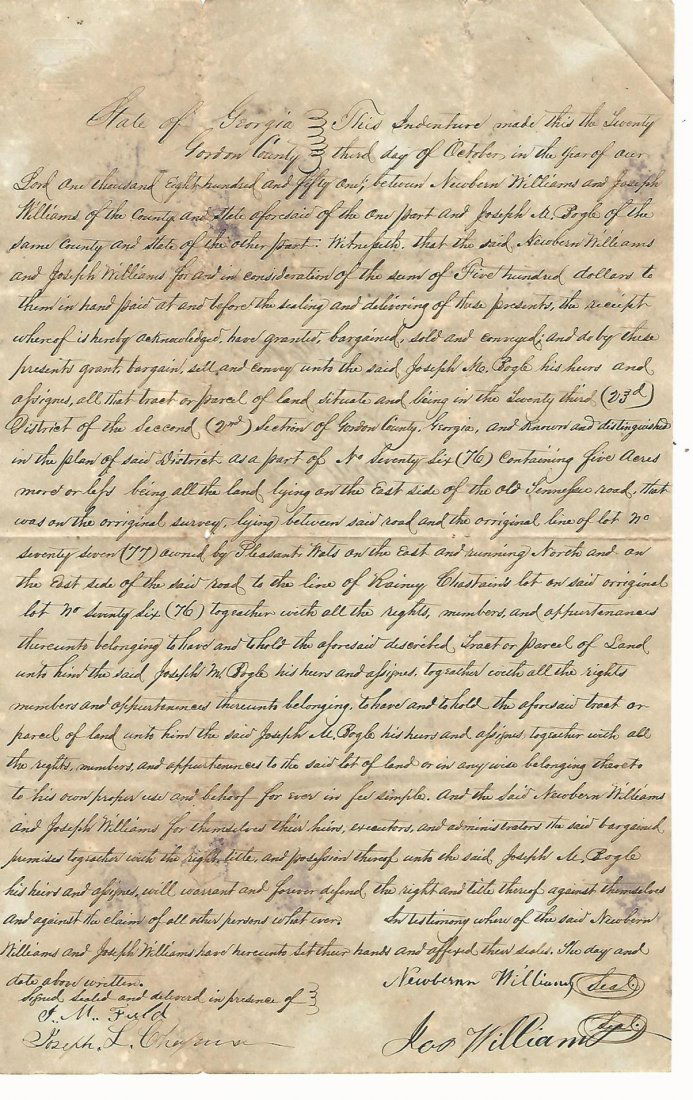 State of Georgia } This Indenture made this the Twenty
Gordon County } third day of October, in the Year of our
Lord one thousand Eight hundred and fifty one; between Newbern Williams and Joseph
Williams of the County and State aforesaid of the one part and Joseph M. Bogle of the
same County and state of the other part: Witnesseth. that the said Newbern Williams
and Joseph Williams for and in consideration of the sum of Five hundred dollars to
them in hand paid at and before the sealing and delivering of these presents, the receipt
whereof is hereby acknowledged, have granted, bargained, sold and conveyed; and do by these
presents grant, bargain, sell and convey unto the said Joseph M. Bogle his heirs and
assignes, all that tract or parcel of land situate and being in the Twenty third (23d)
District of the Seccond (2nd) section of Gordon County, Georgia, and known and distinguished
in the plan of said District as a part of No Seventy Six (76) Containing five Acres
more or less being all the land lying on the East side of the Old Tennessee road, that
was on the orriginal survey, lying between said road and the orriginal line of lot No
seventy seven (77) owned by Pleasant Wats on the East and running North and on
the East side of the said road to the line of Rainey Chastains lot on said orriginal
lot No Seventy Six (76) togeather with all the rights, members, and appurtenances
thereunto belonging to have and to hold the aforesaid described Tract or parcel of Land
unto him the said Joseph M. Bogle his heirs and assignes, togeather with all the rights
members and appurtenences thereunto belonging, to have and to hold the aforesaid tract or
parcel of land unto him the said Joseph M. Bogle his heirs and assignes togeather with all
the rights, members, and appurtenences to the said lot of land or in any wise belonging thereto
to his own proper use and behoof for ever in fee simple. And the Said Newbern Williams
and Joseph Williams for themselves their heirs, executors, and administrators the said bargained
premises togeather with the right, title, and possession thereof unto the said Joseph M. Bogle
his heirs and assignes, will warrant and forever defend the right and title thereof against themselves
and against the claim of all other persons what ever. In testimony where of the said Newbern
Williams and Joseph Williams have hereunto Set their hands and affixed their seales. The day and
date above written.
Newbernn Williams (Seal.)
Signed sealed and delivered in presence of }
J. M. Field
Jos Williams (Seal.)
Joseph. L.